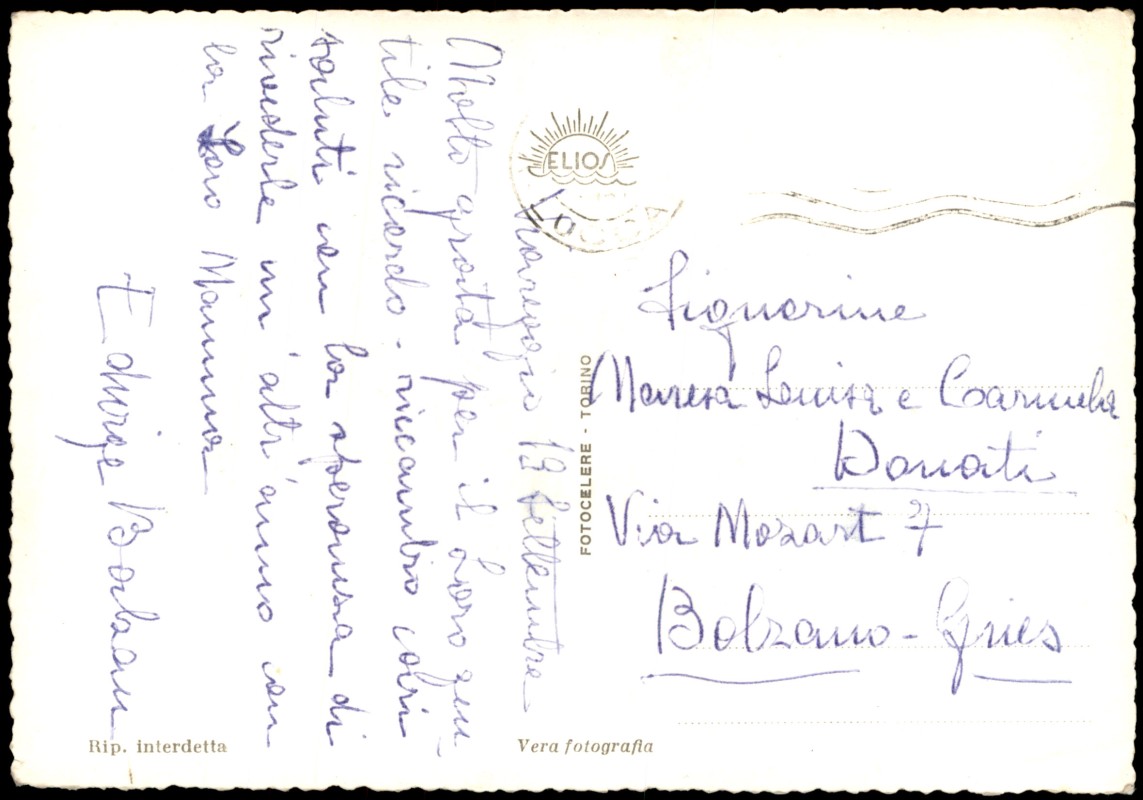 19 settembre
Molto grata per il Loro gen-
tile ricordo - ricambio cari
saluti con la speranza di
rivederle un'altr'anno con
la Loro Mamma
Edvige
ELIOS
Signorine
Maria Luisa e Carmela
Donati
Via Mozart 7
Bolzano-Gries
FOTOCELERE - TORINO
Rip. interdetta
Vera fotografia